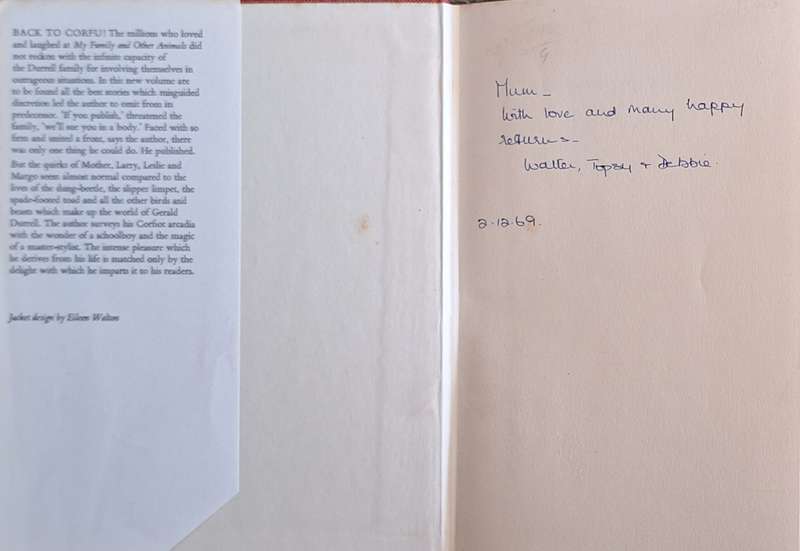 BACK TO CORFU! The millions who loved
and laughed at My Family and Other Animals did
not reckon with the infinite capacity of
the Durrell family for involving themselves in
outrageous situations. In this new volume are
to be found all the best stories which misguided
discretion led the author to omit from its
predecessor. 'If you publish,' threatened the
family, 'we'll sue you in a body.' Faced with so
firm and united a front, says the author, there
was only one thing he could do. He published.
But the quirks of Mother, Larry, Leslie and
Margo seem almost normal compared to the
lives of the dung-beetle, the slipper limpet, the
spade-footed toad and all the other birds and
beasts which make up the world of Gerald
Durrell. The author surveys his Corfiot arcadia
with the wonder of a schoolboy and the magic
of a master-stylist. The intense pleasure which
he derives from his life is matched only by the
delight with which he imparts it to his readers.
Jacket design by Eileen Walton
Mum -
With love and many happy
returns -
Walter, Topsy + Debbie.
2.12.69.